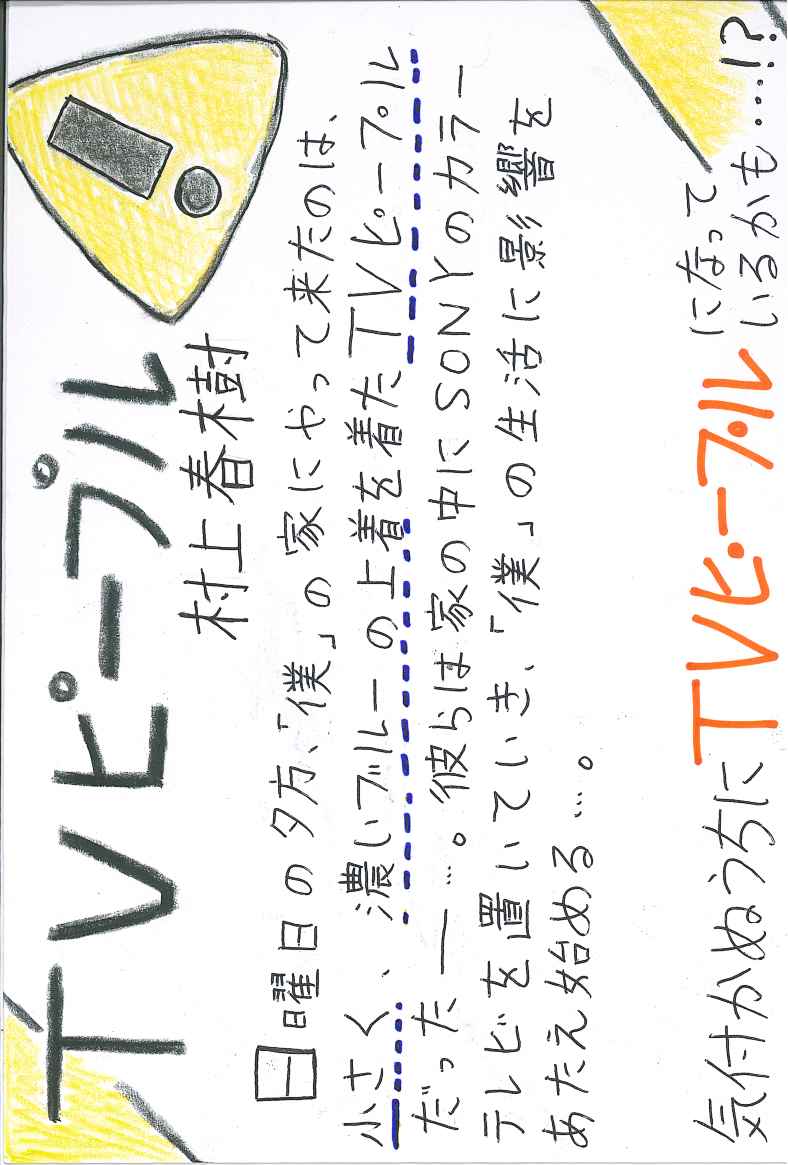 TVピープル
村上春樹
日曜日の夕方、「僕」の家にやって来たのは、
小さく、濃いブルーの上着を着たTVピープル
だった――…。彼らは家の中にSONYのカラー
テレビを置いていき、「僕」の生活に影響を
あたえ始める…。
気付かぬうちにTVピープルになって
いるかも…!?